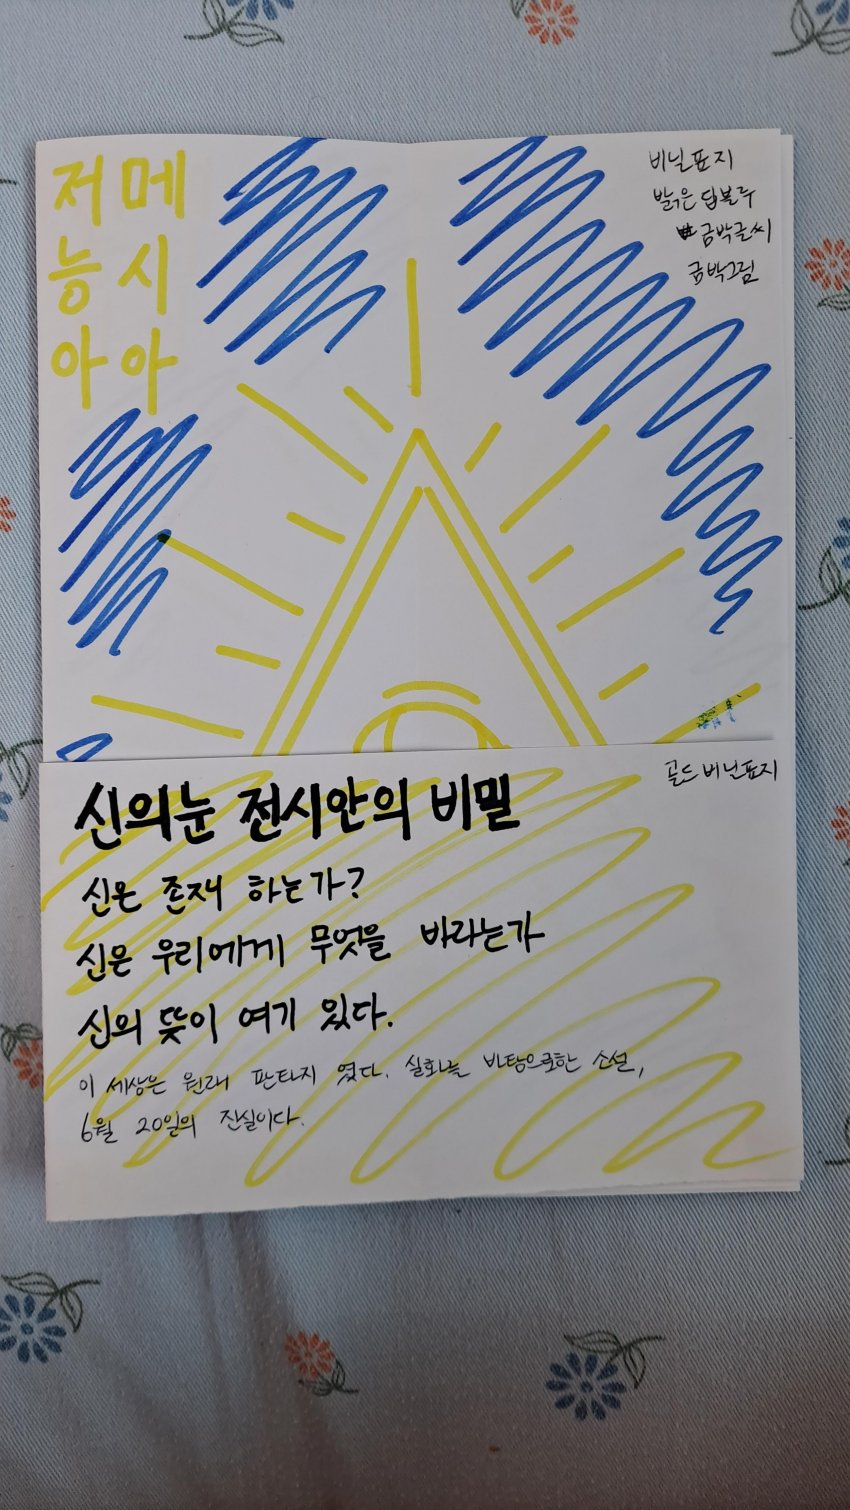 저 메
능 시
아 아
비닐표지
밝은 딥블루
금박글씨
금박그림
골드 비닐표지
신의눈 전시안의 비밀
신은 존재 하는가?
신은 우리에게 무엇을 바라는가
신의 뜻이 여기 있다.
이 세상은 원래 판타지 였다. 실화를 바탕으로한 소설,
6월 20일의 진실이다.